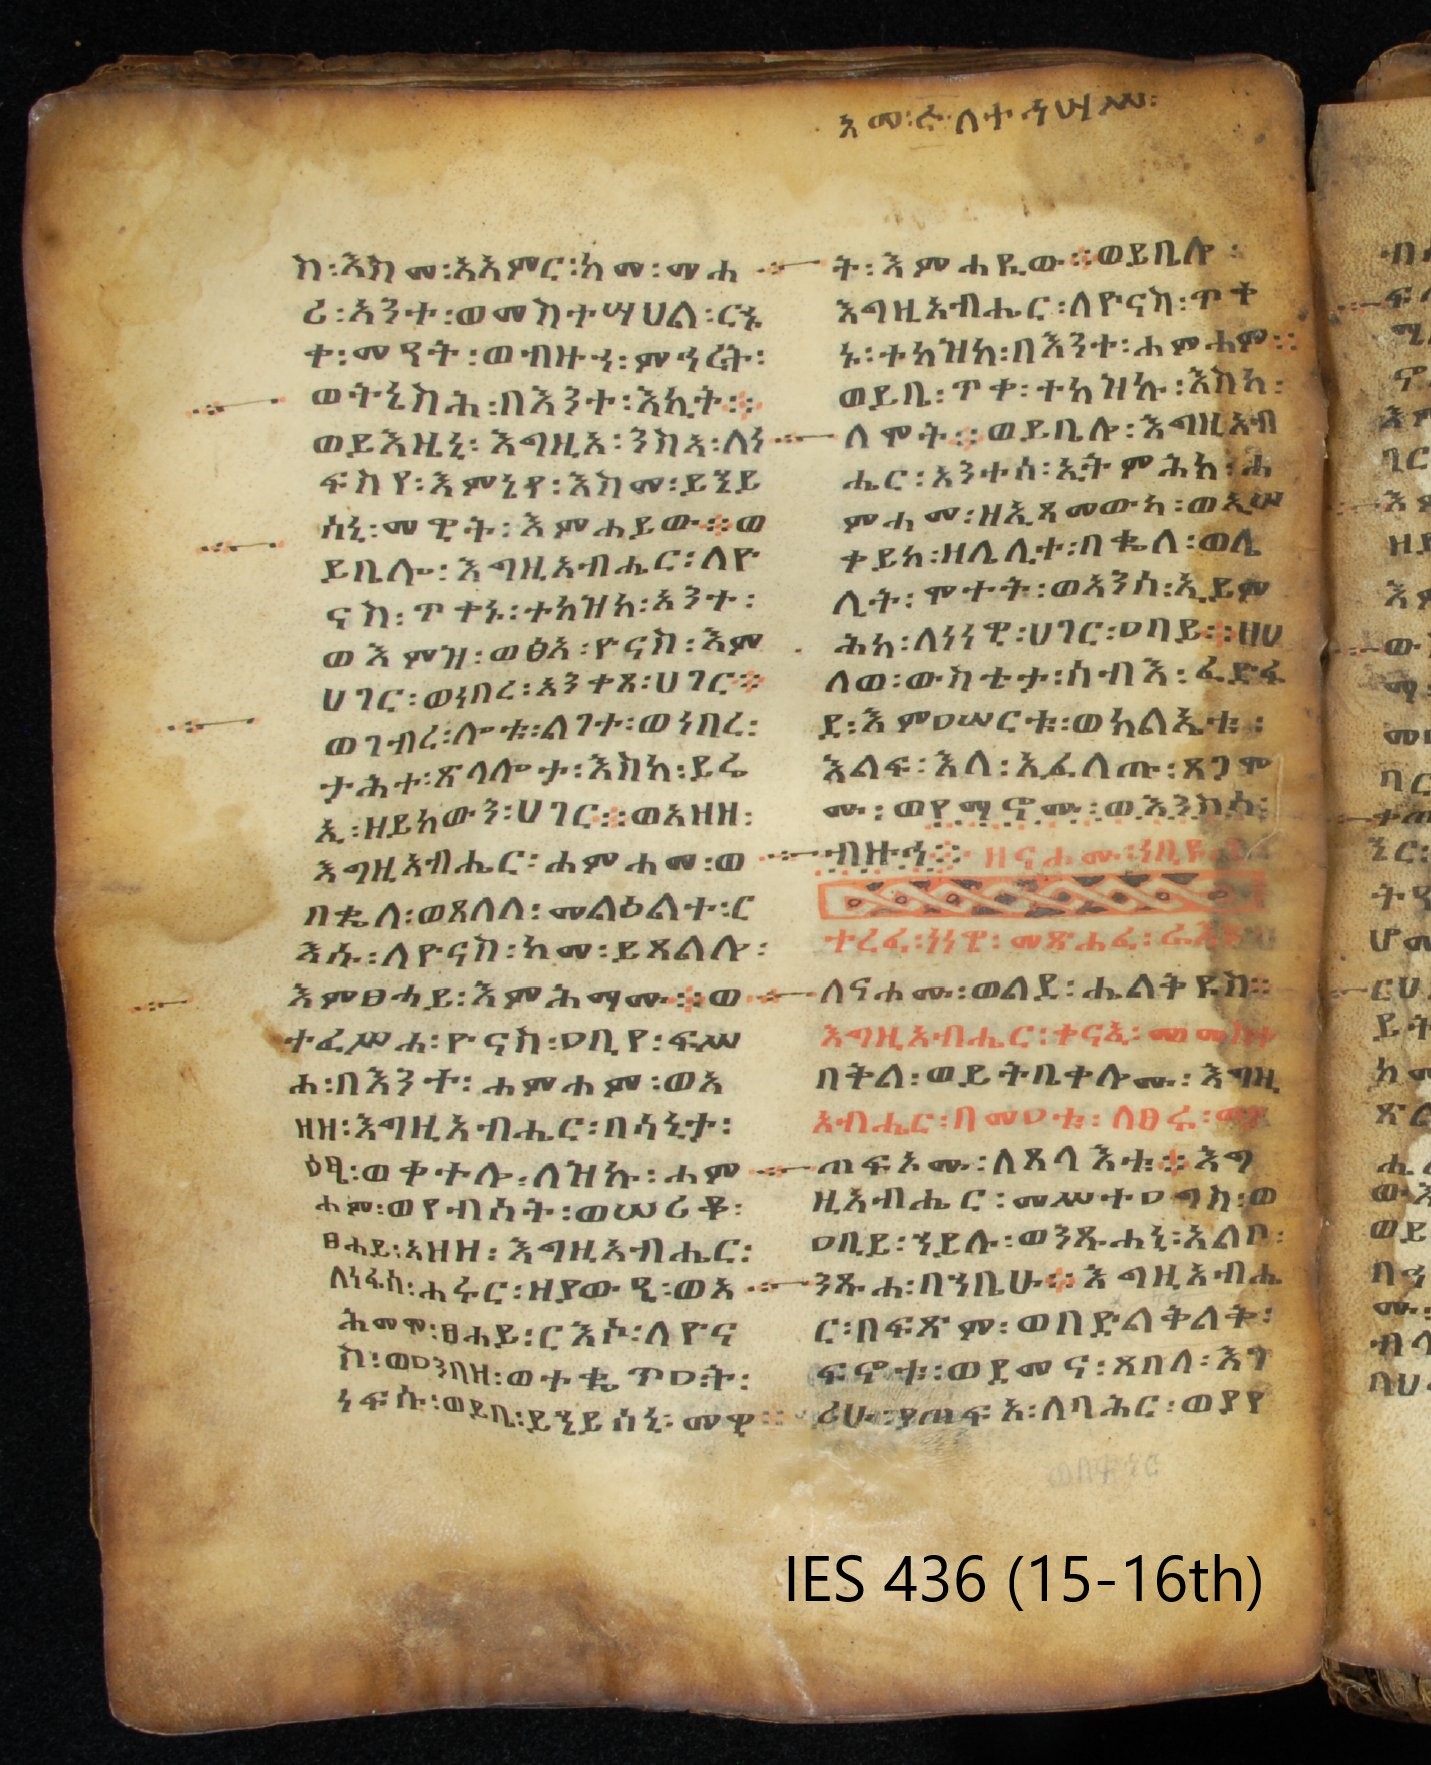 ክ፡እስመ፡አአምር፡ከመ፡መሐ
ሪ፡አንተ፡ወመስተሣህል፡ርኁ
ቀ፡መዓት፡ወብዙኅ፡ምኅረት፡
ወትኔስሕ፡በእንተ፡እኪት፡፡
ወይእዜኒ፡እግዚአ፡ንሥኣ፡ለነ
ፍስየ፡እምኔየ፡እስመ፡ይኄይ
ሰኒ፡መዊት፡እምሐይው፡፡ወ
ይቤሎ፡እግዚአብሔር፡ለዮ
ናስ፡ጥቀኑ፡ተከዝከ፡አንተ፡
ወእምዝ፡ወፅአ፡ዮናስ፡እም
ሀገር፡ወነበረ፡አንቀጸ፡ሀገር፡፡
ወገብረ፡ሎቱ፡ልገተ፡ወነበረ፡
ታሕተ፡ጽላሎታ፡እስከ፡ይሬ
ኢ፡ዘይከውን፡ሀገር፡፡ወአዘዘ፡
እግዚአብሔር፡ሐምሐመ፡ወ
በቈለ፡ወጸለለ፡መልዕልተ፡ር
እሱ፡ለዮናስ፡ከመ፡ይጸልሉ፡
እምፀሓይ፡እምሕማሙ፡፡ወ
ተፈሥሐ፡ዮናስ፡ዐቢየ፡ፍሥ
ሐ፡በእንተ፡ሐምሐም፡ወአ
ዘዘ፡እግዚአብሔር፡በሳኒታ፡
ዕፄ፡ወቀተሎ፡ለዝኩ፡ሐም
ሐም፡ወየብሰት፡ወሠሪቆ፡
ፀሐይ፡አዘዘ፡እግዚአብሔር፡
ለነፋስ፡ሐሩር፡ዘያውዒ፡ወአ
ሕመሞ፡ፀሐይ፡ርእሶ፡ለዮና
ስ፡ወዐንበዘ፡ወተቈጥዐት፡
ነፍሱ፡ወይቤ፡ይኄይሰኒ፡መዊ
ት፡እምሐዪው፡፡ወይቤሎ፡
እግዚአብሔር፡ለዮናስ፡ጥቀ
ኑ፡ተከዝከ፡በእንተ፡ሐምሐም፡፡
ወይቤ፡ጥቀ፡ተከዝኩ፡እስከ፡
ለሞት፡፡ወይቤሎ፡እግዚአብ
ሔር፡አንተሰ፡ኢትምሕከ፡ሐ
ምሐመ፡ዘኢጻመውከ፡ወኢሠ
ቀይከ፡ዘሌሊተ፡በቈለ፡ወሌ
ሊት፡ሞተት፡ወአንሰ፡ኢይም
ሕከ፡ለነነዌ፡ሀገር፡ዐባይ፡፡ዘሀ
ለወ፡ውስቴታ፡ሰብእ፡ፈድፋ
ደ፡እምዐሠርቱ፡ወክልኤቱ፡
እልፍ፡እለ፡ኢፈለጡ፡ጸጋሞ
ሙ፡ወየማኖሙ፡ወእንስሳ፡
ብዙኅ፡፡ዘናሐሙ፡ነቢይ
ተረፈ፡ነነዌ፡መጽሐፈ፡ራእዩ
ለናሐሙ፡ወልደ፡ሔልቅዩስ፡፡
እግዚአብሔር፡ቀናኢ፡መመስተ
በቅል፡ወይትቤቀሎሙ፡እግዚ
አብሔር፡በመዐቱ፡ለፀሩ፡
ጠፍኦሙ፡ለጸላእቱ፡፡እግ
ዚአብሔር፡መሥተዐግስ፡ወ
ዐቢይ፡ኀይሉ፡ወንጹሐኒ፡አልቦ፡
ንጹሐ፡በኀቤሁ፡፡እግዚአብሔ
ር፡በፍጻም፡ወበድልቅልቅ፡
ፍኖቱ፡ወደመና፡ጸበለ፡እገ
ሪሁ፡ያጠፍኣ፡ለባሕር፡ወያየ
IES 436 (15-16th)